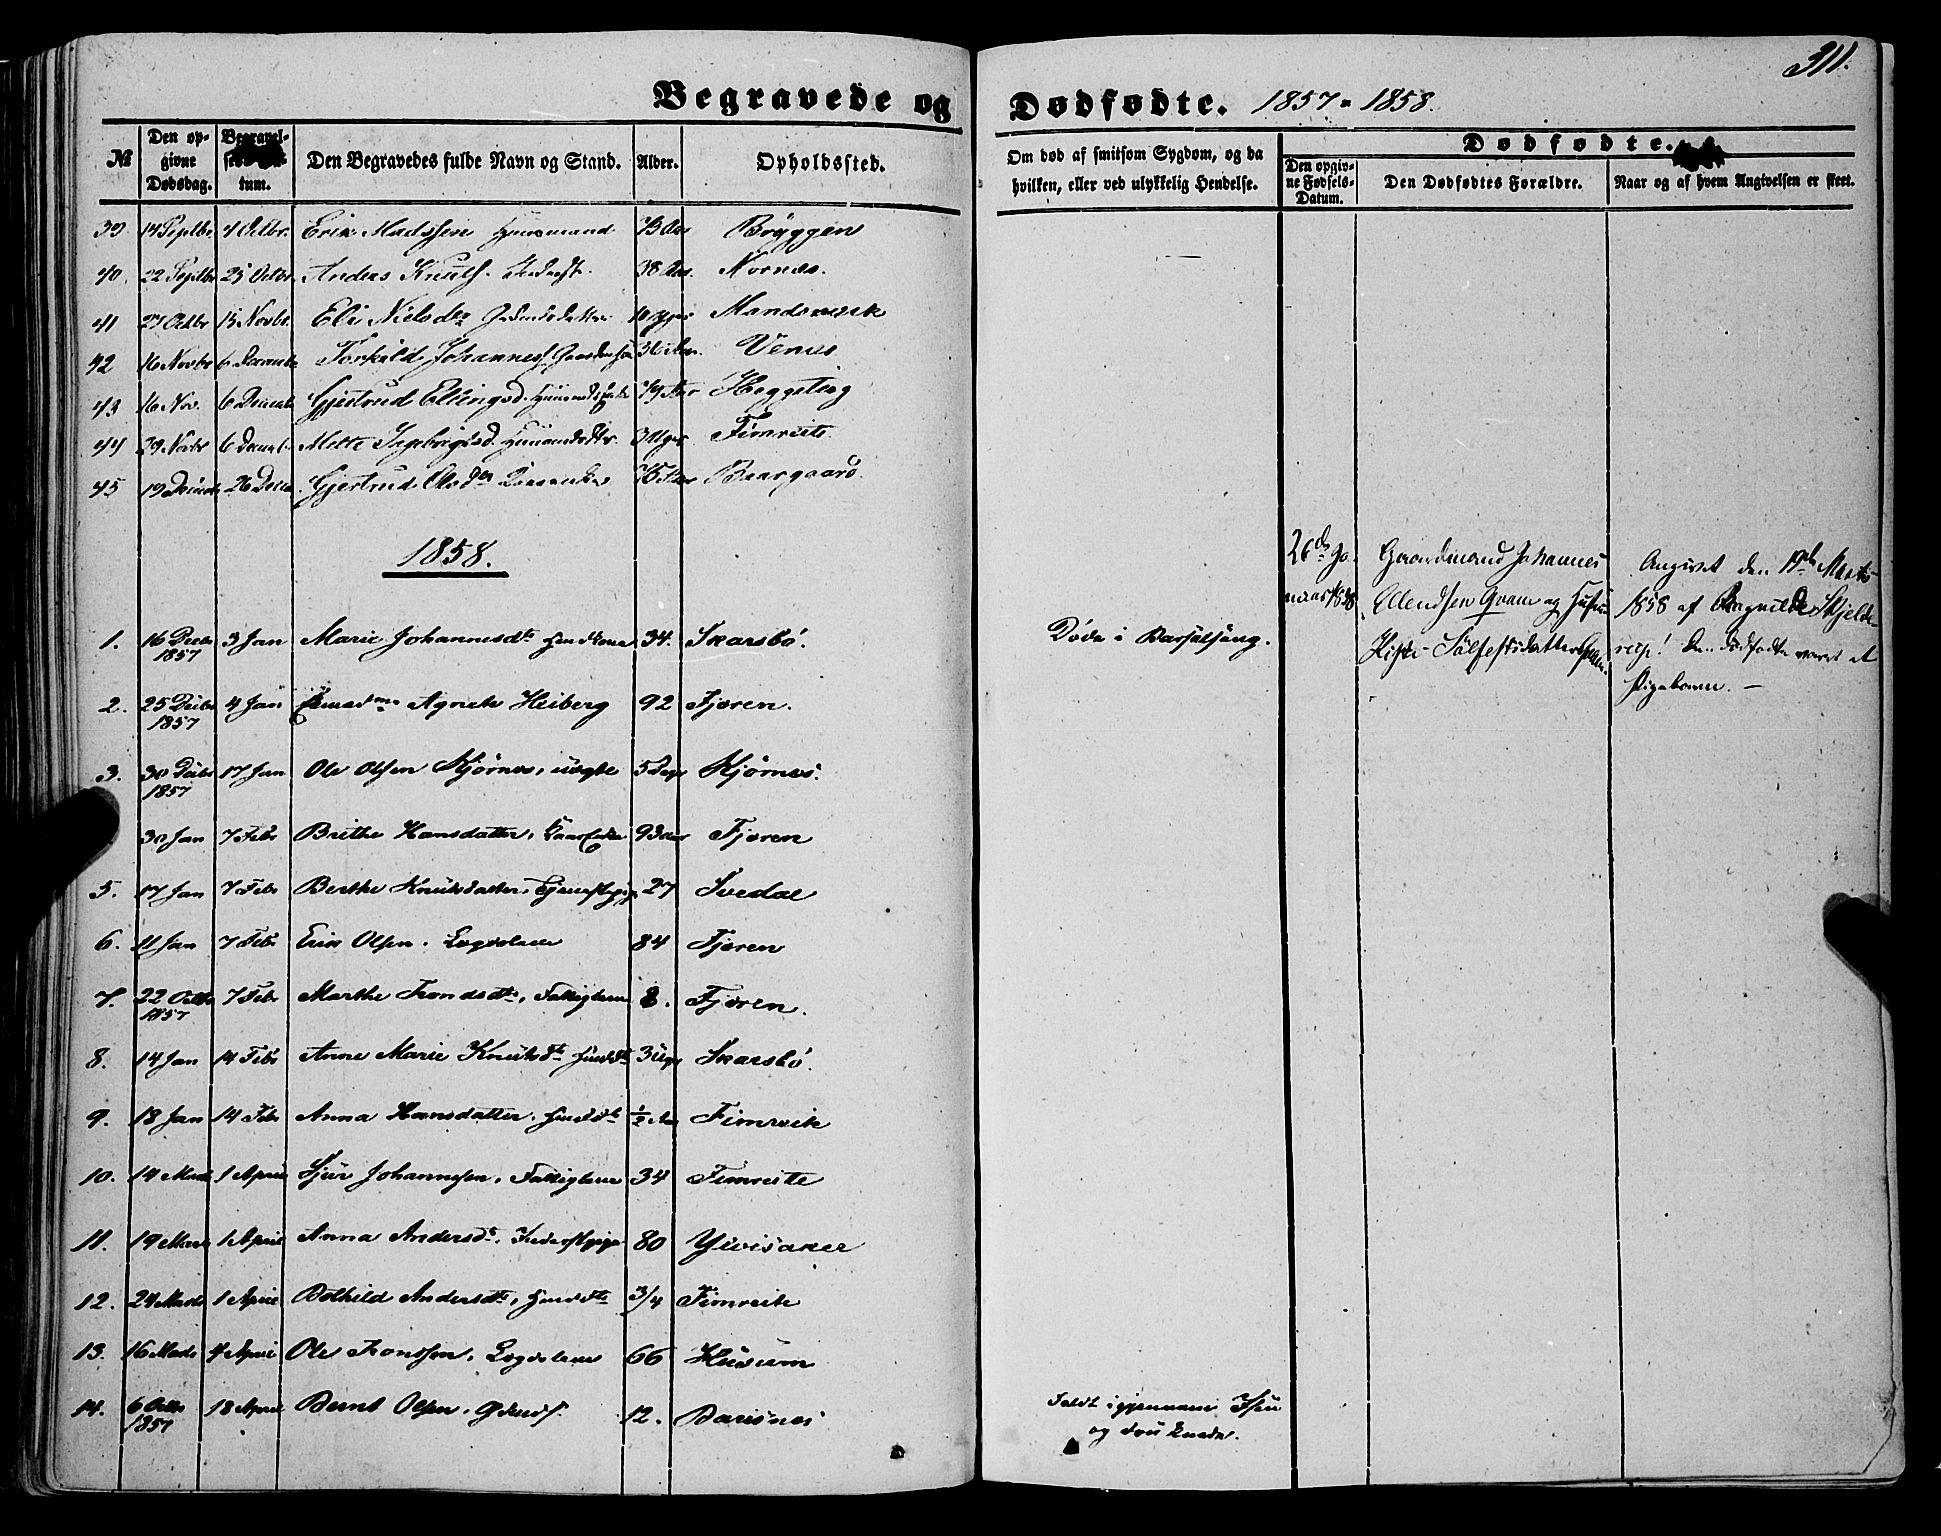 311.
Begravede og Dødfødte. 1857 & 1858.
№ Den opgivne Dødsdag. Begravelses Datum. Den Begravedes fulde Navn og Stand. Alder. Opholdssted.
Om død af smitsom Sygdom, og da hvilken, eller ved ulykkelig Hendelse.
Dødfødte.
Den opgivne Fødsels-Datum. Den Dødfødtes Forældre. Naar og af hvem Angivelsen er skeet.
39 14 Septbr. 4 Octbr. Erik Madssen Huusmand 73 Aar Bryggen
40. 22 Septbr 25 Octbr. Anders Knuts. Inderst. 38 Aar. Nornæs.
41 27 Octbr 15 Novbr. Eli Nielsdr 10 Uger
42 16 Novbr 6 Decembr Torkild Johanness. 36 Aar. Venes
43 16 Nov. 6 Decembr Gjertrud Ellingsd. Heggestng
44 29 Novbr 6 Decembr. Mette Ingeborgsd. Huusmandsdtr. 3 Uger Fimreite
45 19 Decembr 26 Decbr. Gjertrud Olsdr Kaarenke
1858.
1. 16 Decbr 1857 3 Jan Marie Johannesdtr Huuskone 34. Skarsbö.
Döde i Barselseng.
2. 25 Decbr 1857 4 Jan Agnete Heiberg 92 Fjæren.
3. 30 Decbr 1857 17 Jan Ole Olsen Kjörnes, uægte 5 Dage Kjörnes.
30 Jan 7 Febr Brithe Hansdatter, Kaarenke 93 Aar Fjæren
5. 17 Jan 7 Febr Berthe Knutsdatter, Tjenestepige 27 Svedal
6. 11 Jan 7 Febr Erik Olsen. Lægdslem 84 Fjæren
7. 22 Octbr 1857 7 Febr Marthe Trondsdtr, Fattiglem 8. Fjæren.
8. 14 Jan 14 Febr Anne Marie Knutsdtr Huusdtr 3 Uger Skarsbö.
9. 18 Jan 14 Febr Anna Hansdatter. Huusdtr 1/2 Aar Fimreite
10. 14 Marts 1 April Sjur Johannessen, Fattiglem 34 Fimreite
11. 19 Marts 1 April Anna Andersdtr. Inderstpige 80 Ylvisaker
12. 24 Marts 1 April Bothild Andersdtr, Huusdtr 3/4 Fimreite
13. 16 Marts 4 April Ole Tronssen, Lægdslem 66 Husum
14. 6 Octbr 1857 18 April Bernt Olsen. Gdmds. 12. Barsnes
Faldt igjennem Isen
og druknede.
26de Januar 1858
Gaardmand Johannes
Ellendsen Qvam og Hustru
Sölfestsdatter Qvam.
Angivet den 19de Marts
1858 af Skjelde-
rup! Den dødfødte været et
Pigebarn. —